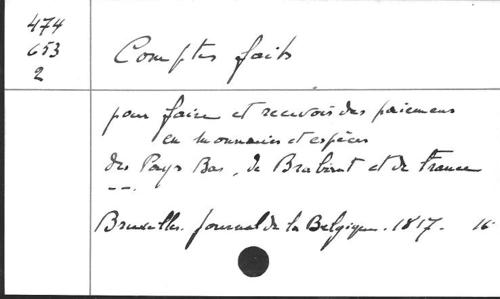 474
653
2
Comptes faits
pour faire et recevoir des paiemens
en monnaies et espèces
des Pays Bas, de Brabant et de France
--.
Bruxelles. Journal de la Belgique. 1817. 16